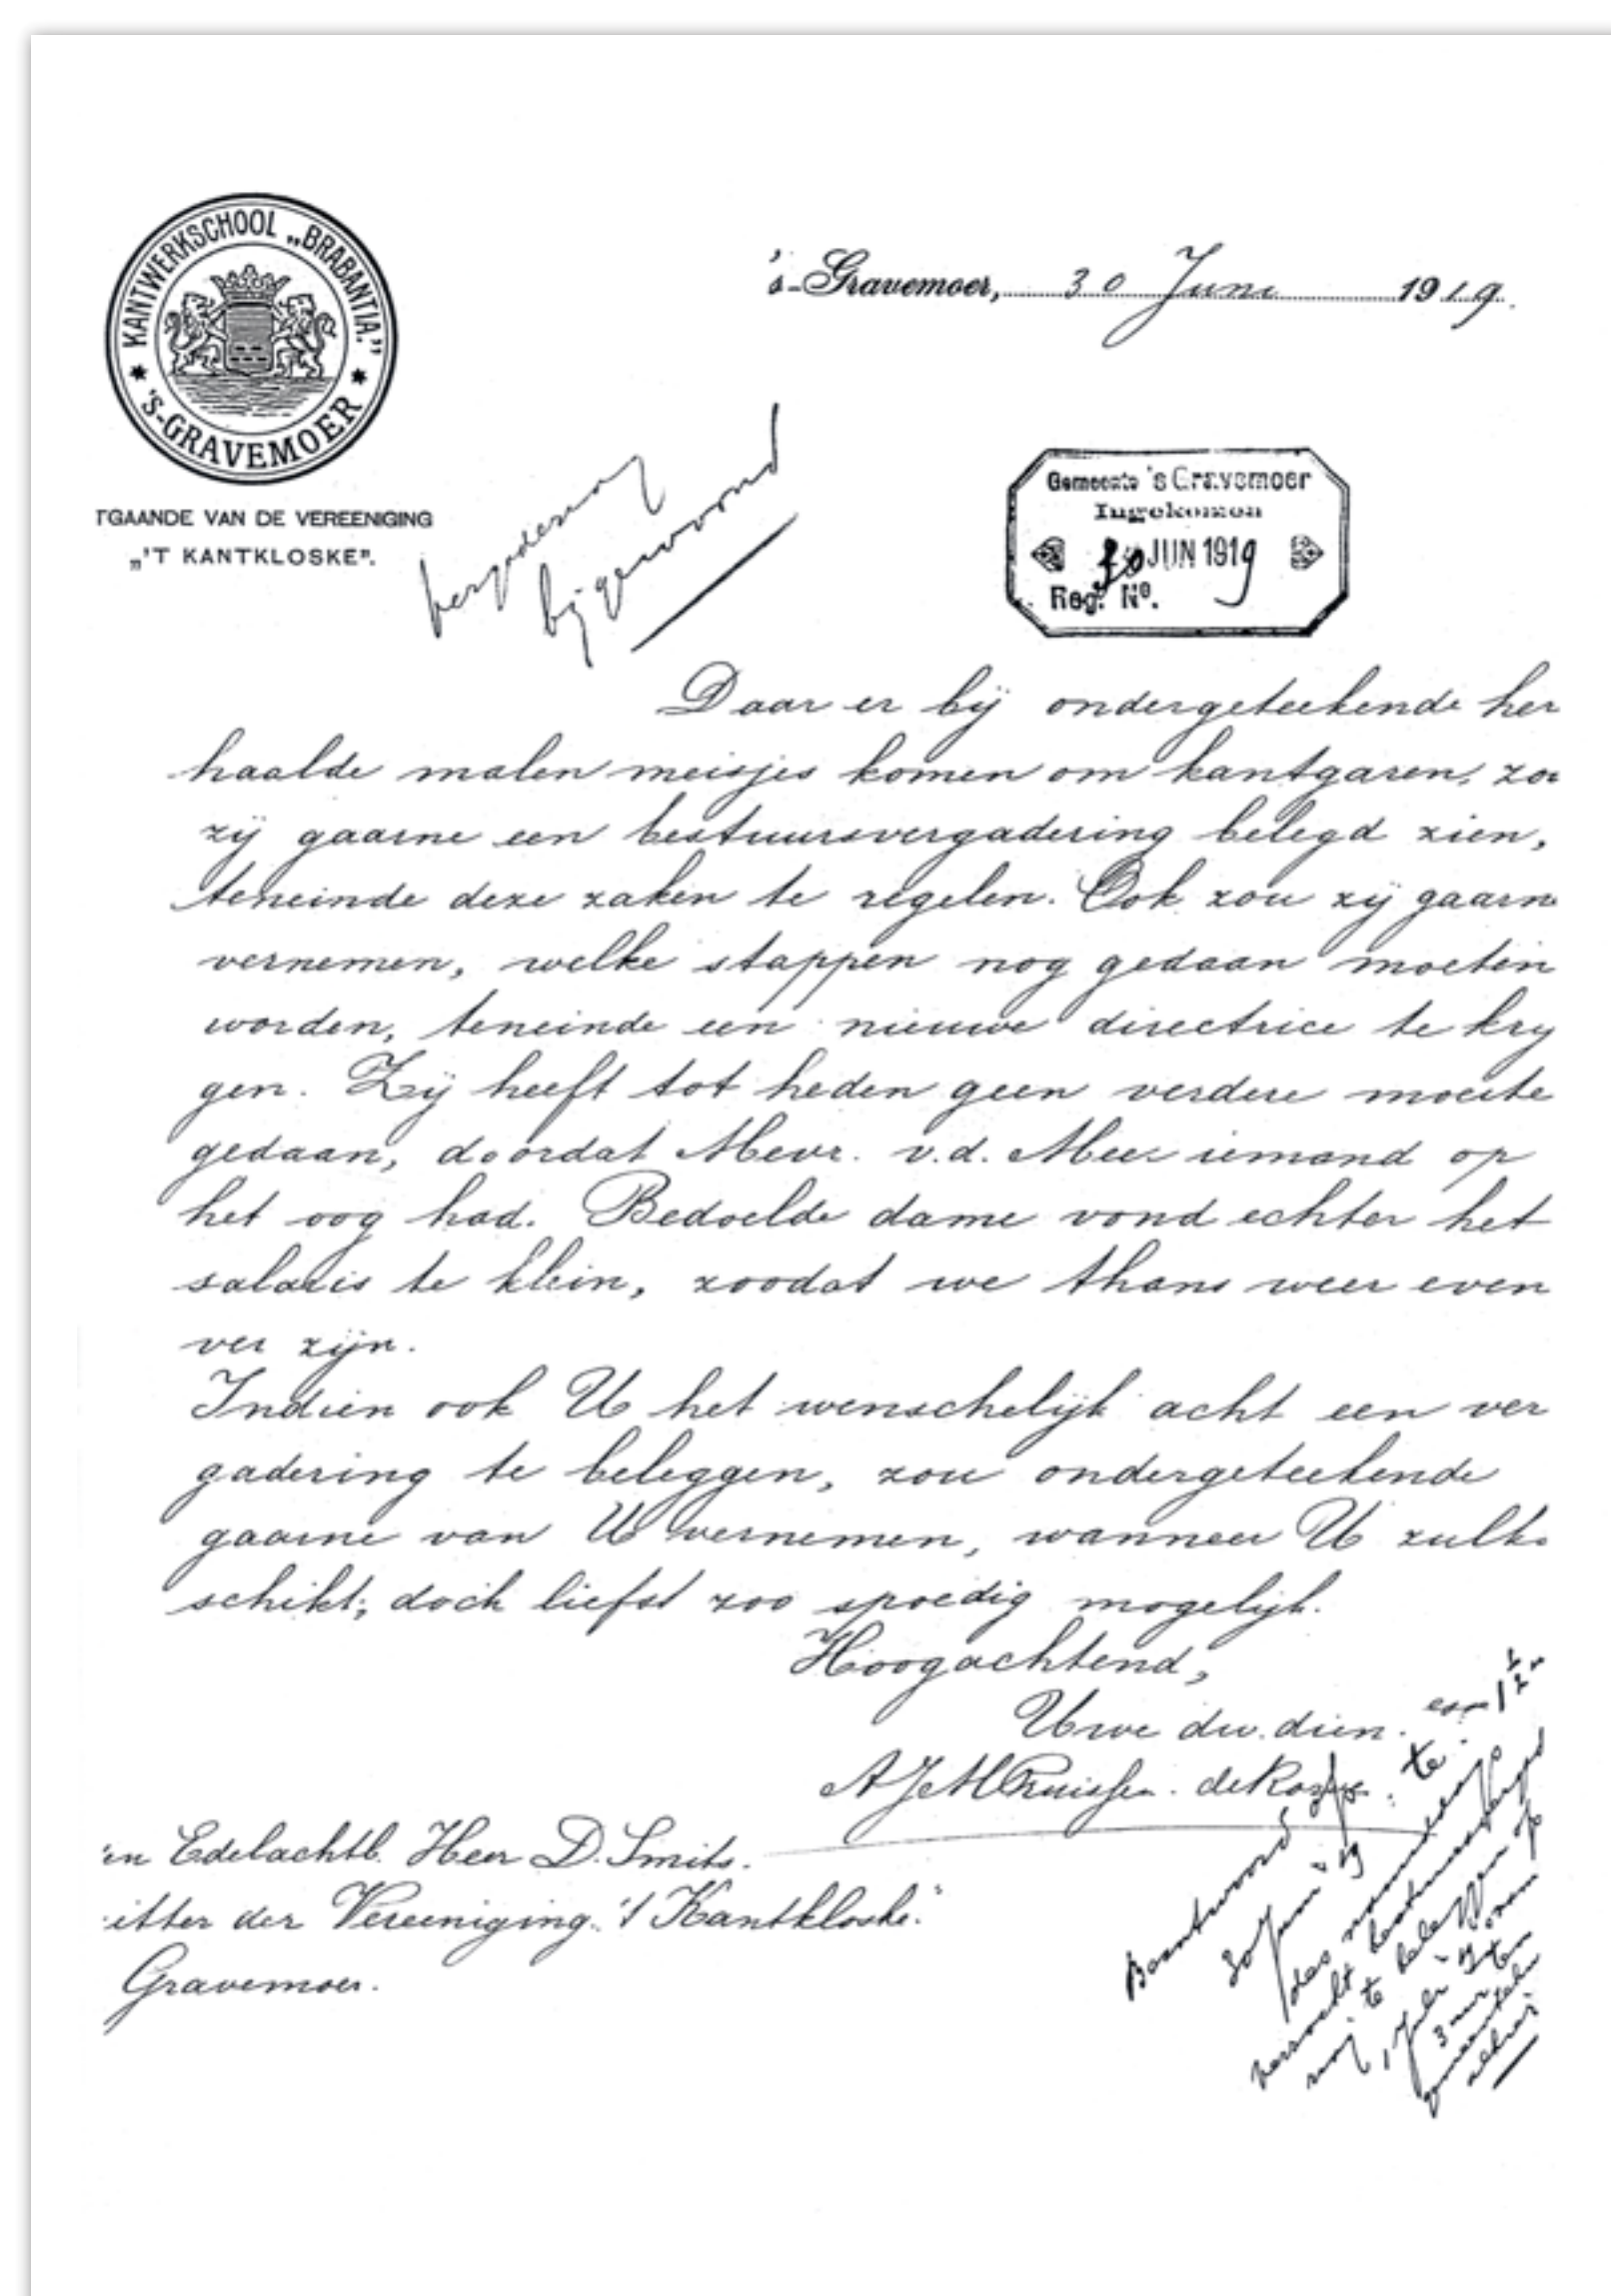 KANTWERKSCHOOL „BRABANTIA."
'S-GRAVEMOER
TGAANDE VAN DE VEREENIGING
„'T KANTKLOSKE".
's-Gravemoer, 30 Juni 1919.
bijgewoond
Gemeente 's Gravemoer
Ingekomen
30 JUN 1919
Reg. No.
Daar er bij ondergeteekende her
haalde malen meisjes komen om kantgaren, zou
zij gaarne een bestuursvergadering belegd zien,
teneinde deze zaken te regelen. Ook zou zij gaarne
vernemen, welke stappen nog gedaan moeten
worden, teneinde een nieuwe directrice te krij
gen. Zij heeft tot heden geen verdere moeite
gedaan, doordat Mevr. v.d. Meer iemand op
het oog had. Bedoelde dame vond echter het
salaris te klein, zoodat we thans weer even
ver zijn.
Indien ook U het wenschelijk acht een ver
gadering te beleggen, zou ondergeteekende
gaarne van U vernemen, wanneer U zulks
schikt; doch liefst zoo spoedig mogelijk.
Hoogachtend,
Uwe dw. dien.
en Edelachtb. Heer D. Smits.
itter der Vereeniging "'t Kantkloske."
Gravemoer.
Beantwoord
30 Juni '19
des namiddags
verzocht
te beleggen op
1 Juli
3 uur